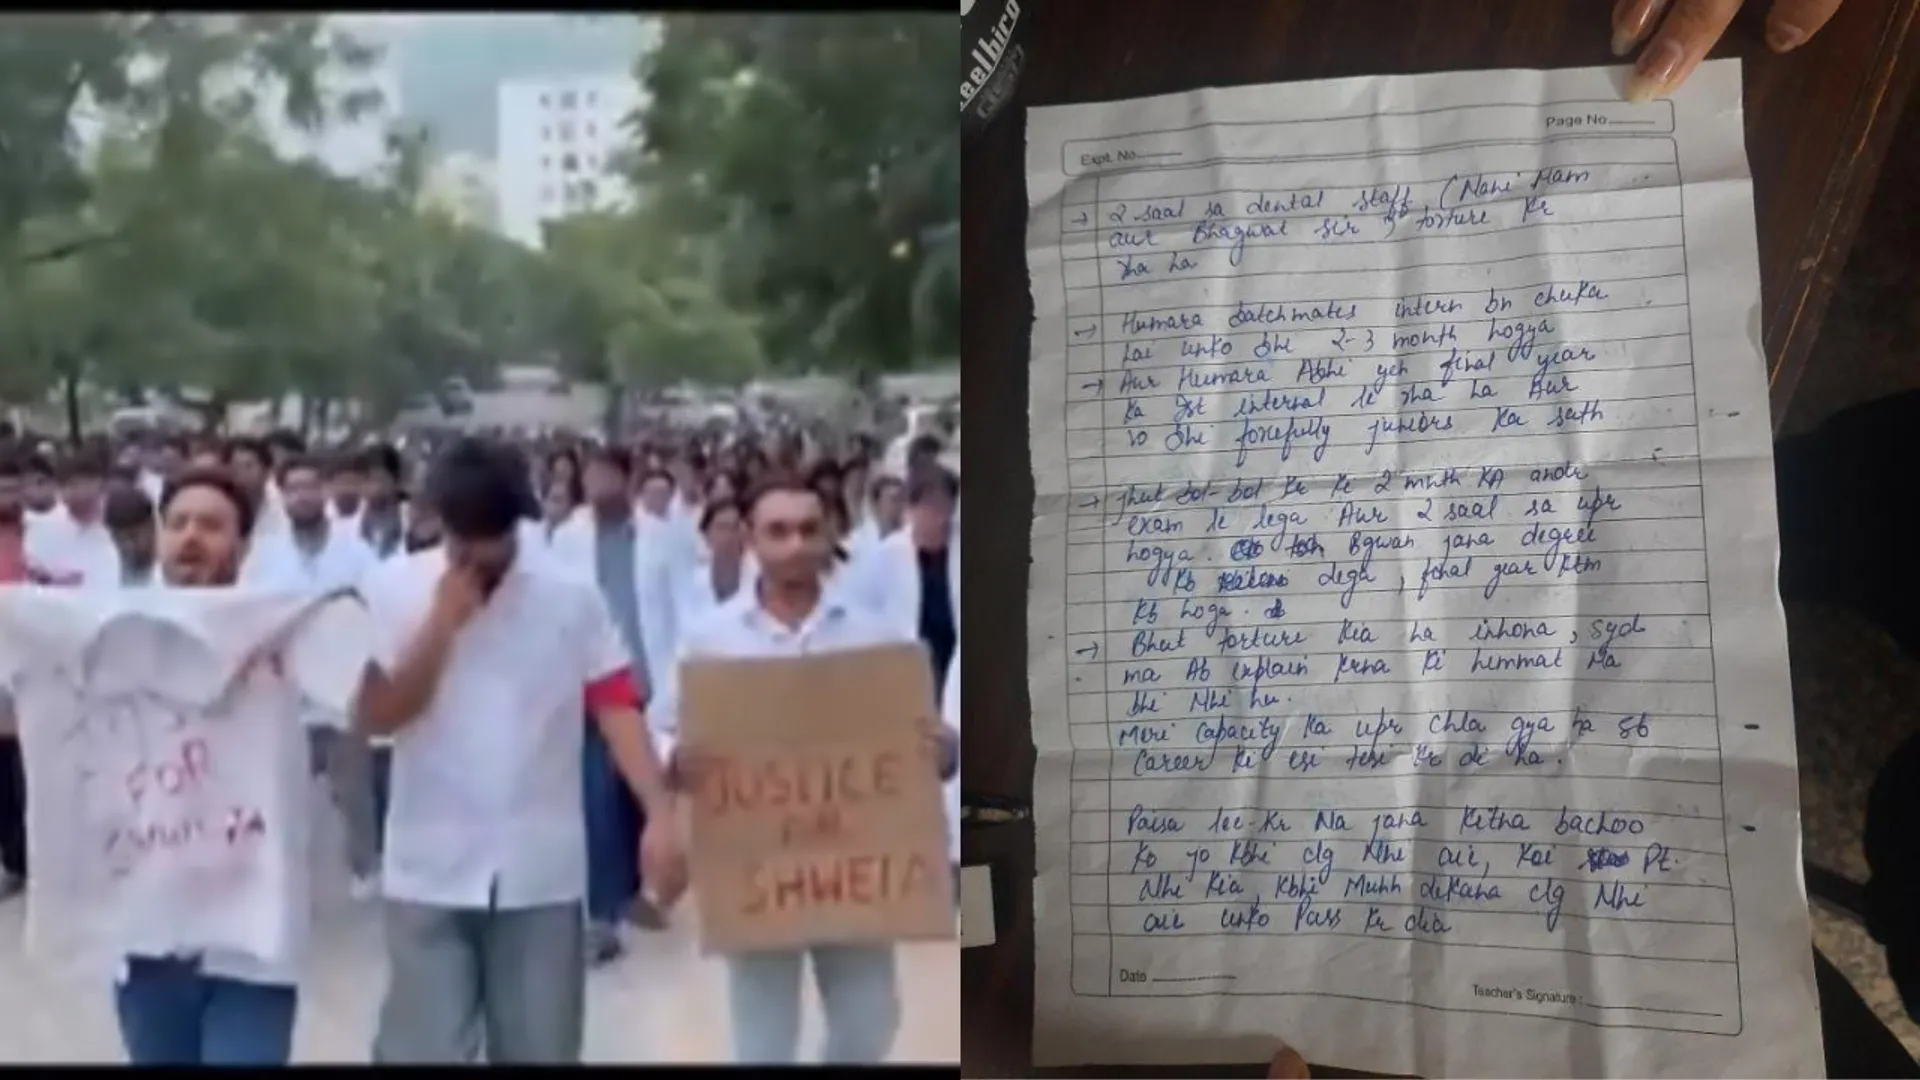 FOR
JUSTICE
FOR
SHWETA
eelbird
Expt. No.
Page No.
→ 2 saal sa dental staff (Mami Mam
aur Bhagwat sir) torture kr
rha ha
→ Humara batchmates intern bn chuka
hai unko bhi 2-3 month hogya
→ Aur Humara Abhi yeh final year
ka Ist internal le rha ha Aur
vo bhi forcefully juniors ka sath
→ jhut bol-bol kr ke 2 mnth KA andr
exam le lega Aur 2 saal sa upr
hogya. Bgwan jana degree
kb dega, final year khtm
kb hoga.
→ Bhut torture kia ha inhona, Syd
ma Ab explain krna ki himmat Ma
bhi Nhi hu.
Meri capacity ka upr chla gya ha sb
Career ki esi tesi kr di ha.
Paisa lee-kr Na jana kitna bachoo
ko jo kbhi clg Nhi aie, koi Pt.
Nhi kia, kbhi Muhh dikana clg Nhi
aie unko Pass kr dia
Date
Teacher's Signature: